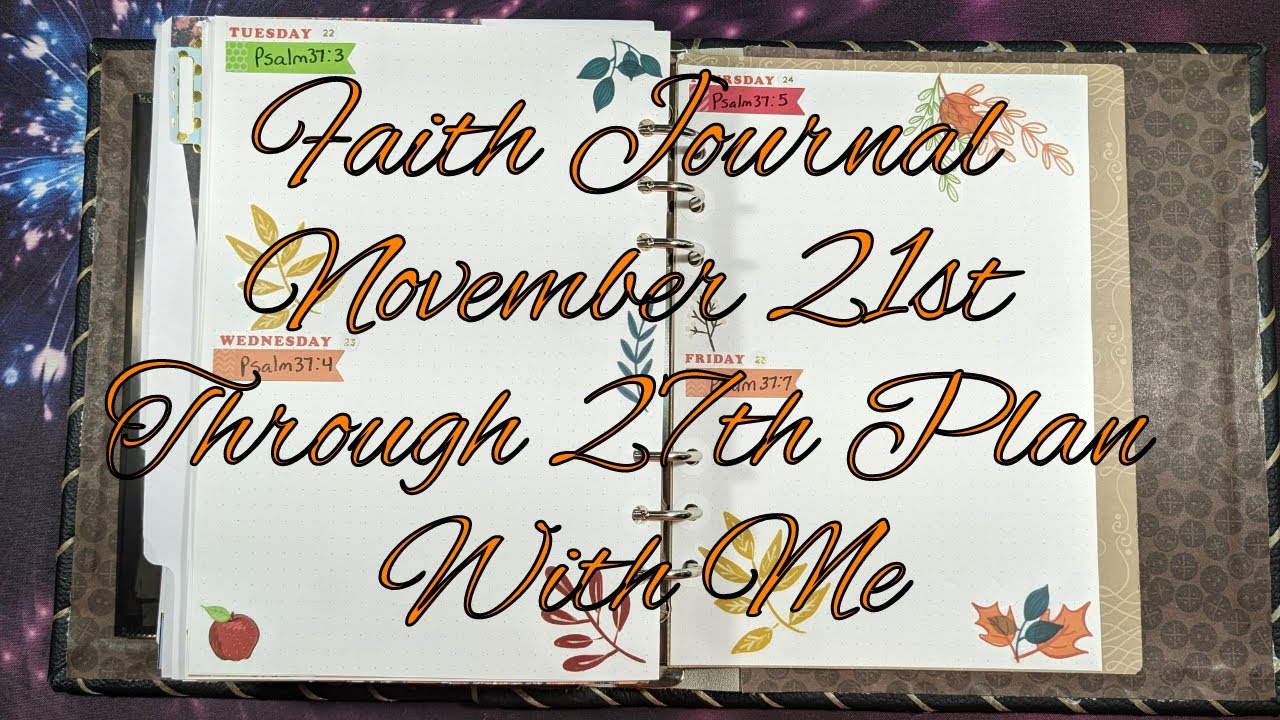 TUESDAY 22
Psalm37:3
THURSDAY 24
Psalm 37:5
Faith Journal
November 21st
WEDNESDAY 23
Psalm37:4
FRIDAY 25
Psalm 37:7
Through 27th Plan
With Me